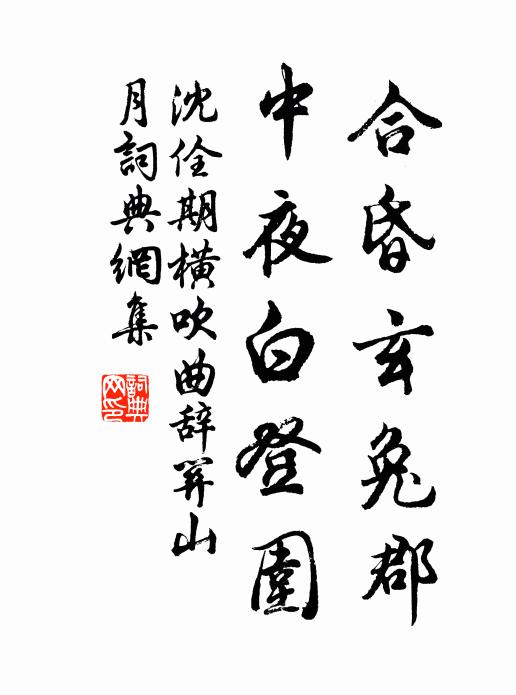 合昏玄兔郡
中夜白登圍
沈佺期橫吹曲辞關山
月詞典網集
詞典
网印